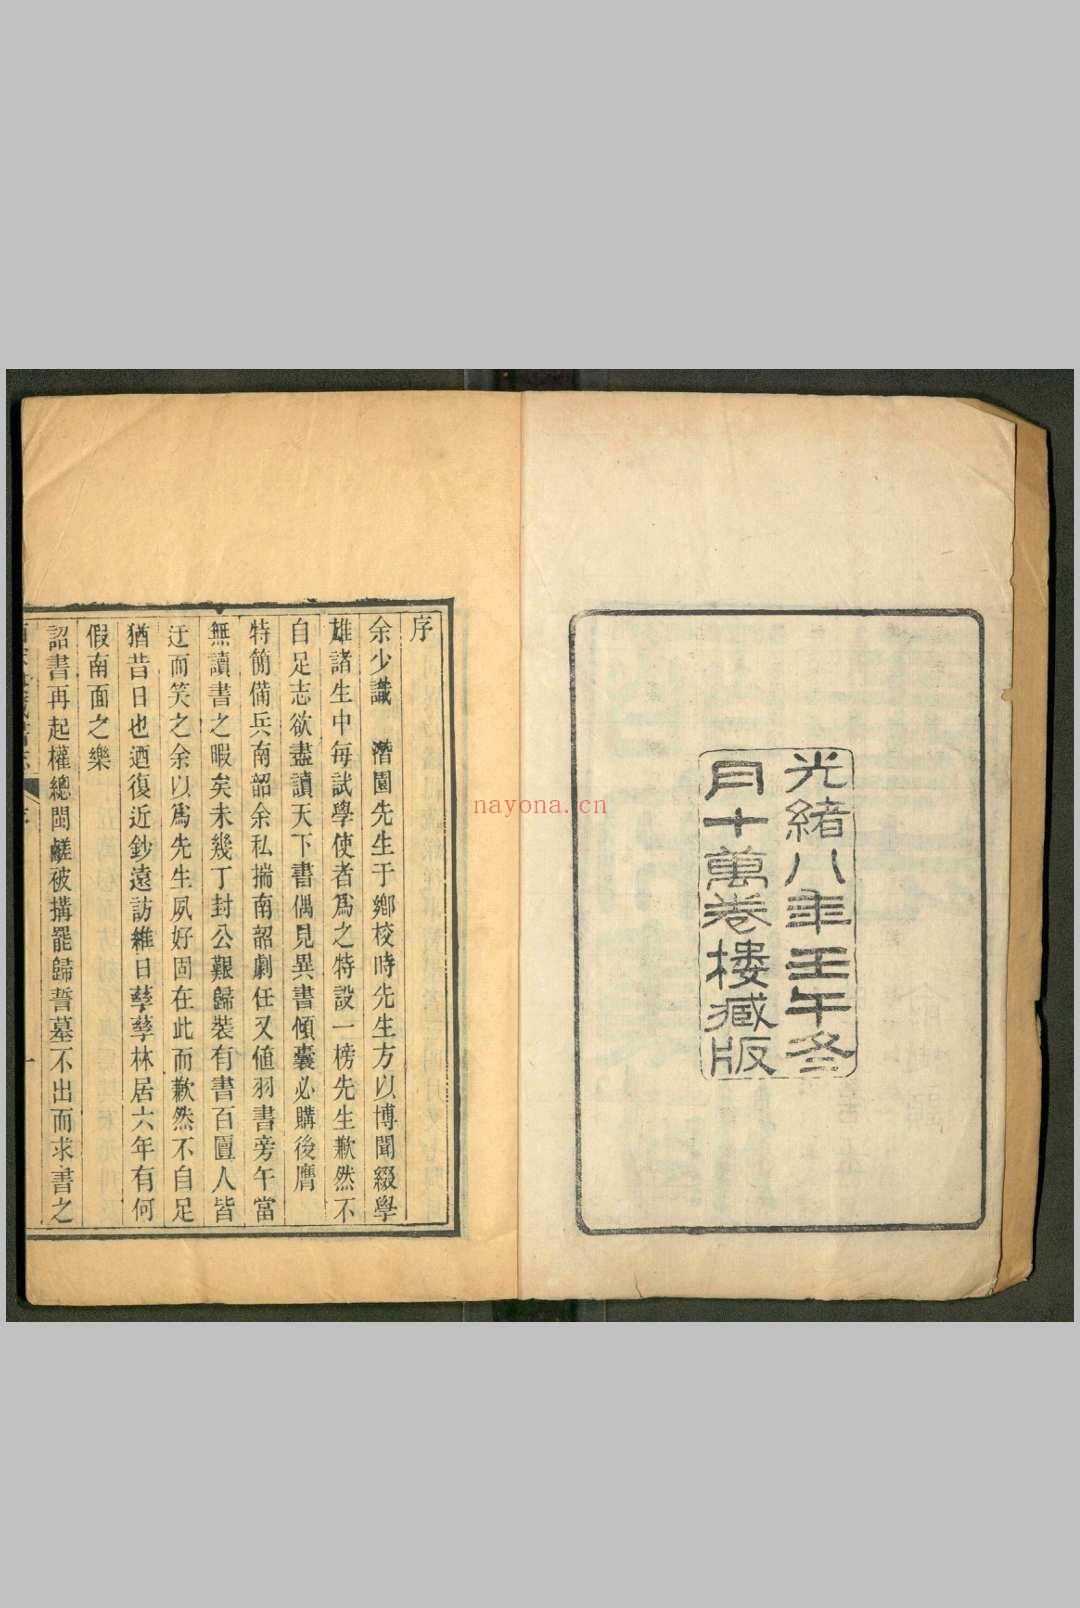 光緒八年壬午冬
月十萬卷樓藏版
序
余少識　潛園先生于鄉校時先生方以博聞綴學
雄諸生中每試學使者爲之特設一榜先生歉然不
自足志欲盡讀天下書偶見異書傾囊必購後膺
特簡備兵南韶余私揣南韶劇任又値羽書旁午當
無讀書之暇矣未幾丁封公艱歸裝有書百匱人皆
迂而笑之余以爲先生夙好固在此而歉然不自足
猶昔日也迺復近鈔遠訪維日孳孳林居六年有何
假南面之樂
詔書再起權總閩鹺被搆罷歸誓墓不出而求書之
一
nayona.cn